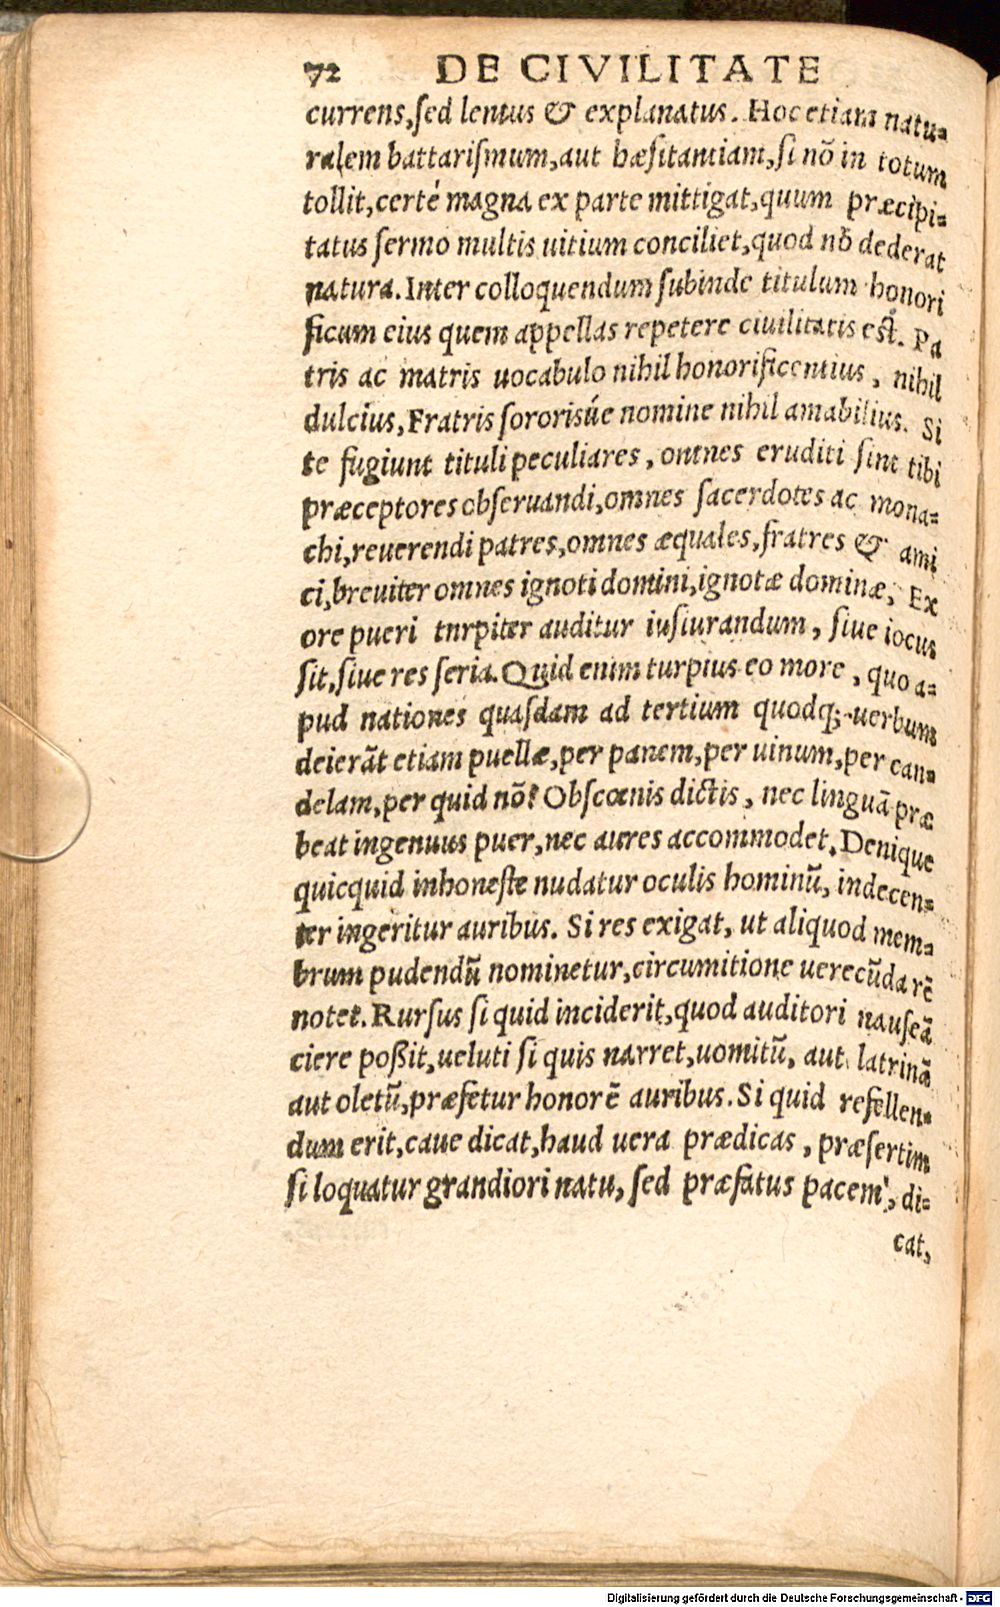 72 DE CIVILITATE
currens, sed lentus & explanatus. Hoc etiam natu=
ralem battarismum, aut hæsitantiam, si nō in totum
tollit, certé magna ex parte mittigat, quum præcipi=
tatus sermo multis uitium conciliet, quod nō dederat
natura. Inter colloquendum subinde titulum honori
ficum eius quem appellas repetere ciuilitatis est. Pa
tris ac matris uocabulo nihil honorificentius, nihil
dulcius, Fratris sororisúe nomine nihil amabilius. Si
te fugiunt tituli peculiares, omnes eruditi sint tibi
præceptores obseruandi, omnes sacerdotes ac mona=
chi, reuerendi patres, omnes æquales, fratres & ami
ci, breuiter omnes ignoti domini, ignotæ dominæ, Ex
ore pueri tnrpiter auditur iusiurandum, siue iocus
sit, siue res seria. Quid enim turpius eo more, quo a=
pud nationes quasdam ad tertium quodq; uerbum
deierāt etiam puellæ, per panem, per uinum, per can=
delam, per quid nō? Obscœnis dictis, nec linguā præ
beat ingenuus puer, nec aures accommodet. Denique
quicquid inhoneste nudatur oculis hominū, indecen=
ter ingeritur auribus. Si res exigat, ut aliquod mem=
brum pudendū nominetur, circumitione uerecūda rē
notet. Rursus si quid inciderit, quod auditori nauseā
ciere poßit, ueluti si quis narret, uomitū, aut latrinā
aut oletū, præfetur honorē auribus. Si quid refellen=
dum erit, caue dicat, haud uera prædicas, præsertim
si loquatur grandiori natu, sed præfatus pacem, di=
cat,
Digitalisierung gefördert durch die Deutsche Forschungsgemeinschaft - DFG